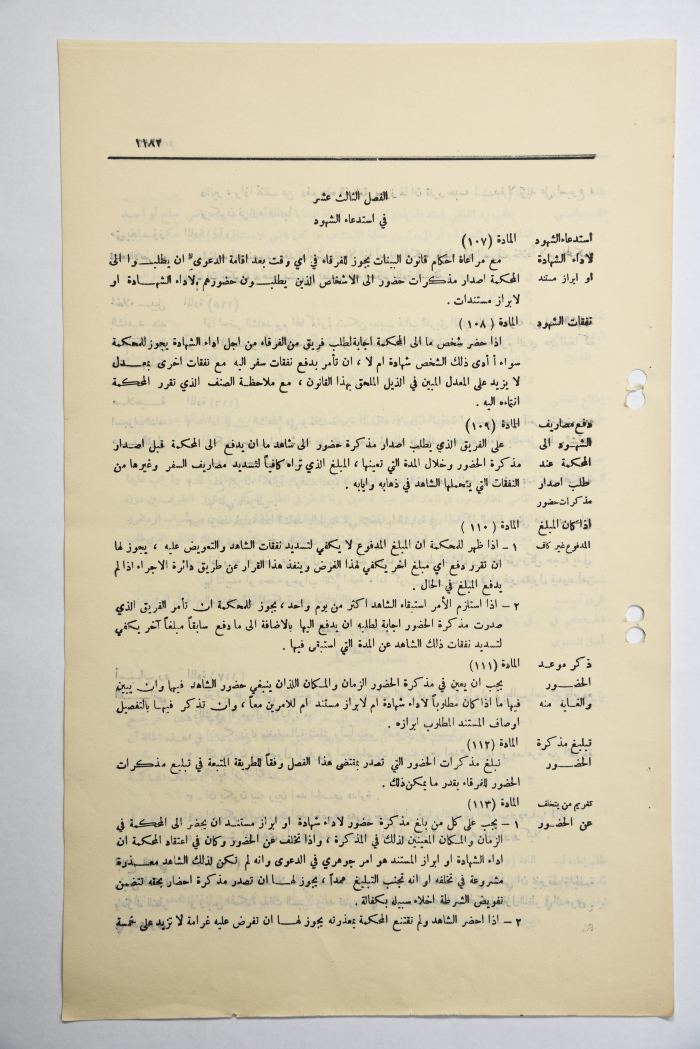 ١١٨٢
الفصل الثالث عشر
في استدعاء الشهود
استدعاء الشهود المادة (١٠٧)
لاداء الشهادة مع مراعاة احكام قانون البينات يجوز للفرقاء في اي وقت بعد اقامة الدعوى ان يطلبوا الى
او ابراز مستند المحكمة اصدار مذكرات حضور الى الاشخاص الذين يطلبون حضورهم لاداء الشهادة او
لابراز مستندات .
نفقات الشهود المادة (١٠٨)
اذا حضر شخص ما الى المحكمة اجابة لطلب فريق من الفرقاء من اجل اداء الشهادة يجوز للمحكمة
سواء أ أدى ذلك الشخص شهادة ام لا ، ان تأمر بدفع نفقات سفر اليه مع نفقات اخرى بمعدل
لا يزيد على المعدل المبين في الذيل الملحق بهذا القانون ، مع ملاحظة الصنف الذي تقرر المحكمة
انتماءه اليه .
دفع مصاريف المادة (١٠٩)
الشهود الى على الفريق الذي يطلب اصدار مذكرة حضور الى شاهد ما ان يدفع الى المحكمة قبل اصدار
المحكمة عند مذكرة الحضور وخلال المدة التي تعينها ، المبلغ الذي تراه كافياً لتسديد مصاريف السفر وغيرها من
طلب اصدار النفقات التي يتحملها الشاهد في ذهابه وايابه .
مذكرات حضور
اذا كان المبلغ المادة (١١٠)
المدفوع غير كاف ١ – اذا ظهر للمحكمة ان المبلغ المدفوع لا يكفي لتسديد نفقات الشاهد والتعويض عليه ، يجوز لها
ان تقرر دفع اي مبلغ آخر يكفي لهذا الغرض وينفذ هذا القرار عن طريق دائرة الاجراء اذا لم
يدفع المبلغ في الحال .
٢ – اذا استلزم الأمر استبقاء الشاهد اكثر من يوم واحد ، يجوز للمحكمة ان تأمر الفريق الذي
صدرت مذكرة الحضور اجابة لطلبه ان يدفع اليها بالاضافة الى ما دفع سابقاً مبلغاً آخر يكفي
لتسديد نفقات ذلك الشاهد عن المدة التي استبقي فيها .
ذكر موعد المادة (١١١)
الحضور يجب ان يعين في مذكرة الحضور الزمان والمكان اللذان ينبغي حضور الشاهد فيها وان يبين
والغاية منه فيها ما اذا كان مطلوباً لاداء شهادة ام لابراز مستند ام للامرين معاً ، وان تذكر فيها بالتفصيل
اوصاف المستند المطلوب ابرازه .
تبليغ مذكرة المادة (١١٢)
الحضور تبلغ مذكرات الحضور التي تصدر بمقتضى هذا الفصل وفقاً للطريقة المتبعة في تبليغ مذكرات
الحضور للفرقاء بقدر ما يمكن ذلك .
تغريم من يتخلف المادة (١١٣)
عن الحضور ١ – يجب على كل من بلغ مذكرة حضور لاداء شهادة او ابراز مستند ان يحضر الى المحكمة في
الزمان والمكان المعينين لذلك في المذكرة ، واذا تخلف عن الحضور وكان في اعتقاد المحكمة ان
اداء الشهادة او ابراز المستند هو امر جوهري في الدعوى وانه لم تكن لذلك الشاهد معذرة
مشروعة في تخلفه او انه تجنب التبليغ عمداً ، يجوز لها ان تصدر مذكرة احضار بحقه تتضمن
تفويض الشرطة اخلاء سبيله بكفالة .
٢ – اذا احضر الشاهد ولم تقتنع المحكمة بمعذرته يجوز لها ان تفرض عليه غرامة لا تزيد على خمسة